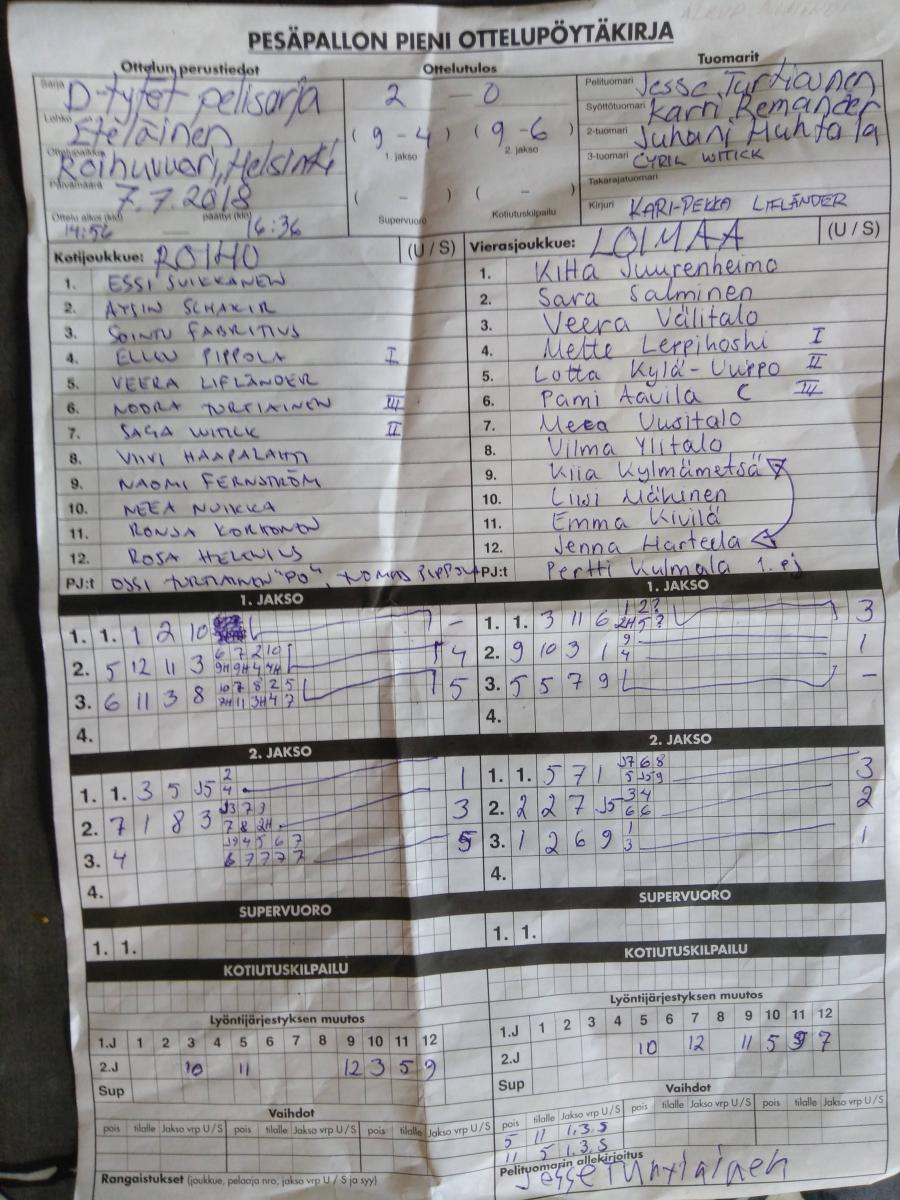 PESÄPALLON PIENI OTTELUPÖYTÄKIRJA
Ottelun perustiedot
Sarja D-tytöt pelisarja
Lohko Eteläinen
Ottelupaikka Roihuvuori, Helsinki
Päivämäärä 7.7.2018
Ottelu alkoi (klo) päättyi (klo)
14:56 — 16:36
Ottelutulos
2 — 0
( 9 - 4 ) ( 9 - 6 )
1. jakso 2. jakso
( - ) ( - )
Supervuoro Kotiutuskilpailu
Tuomarit
Pelituomari Jesse Turtiainen
Syöttötuomari Karri Remander
2-tuomari Juhani Huhtala
3-tuomari CYRIL WITICK
Takarajatuomari
Kirjuri KARI-PEKKA LIFLÄNDER
Kotijoukkue: ROIHU (U / S)
1. ESSI SUIKKANEN
2. AYSIN SCHAKIR
3. SOINTU FABRITIUS
4. ELLEN PIPPOLA I
5. VEERA LIFLÄNDER
6. NOORA TURTIAINEN III
7. SAGA WITICK II
8. VIIVI HAAPALAHTI
9. NAOMI FERNSTRÖM
10. NEEA NUIKKA
11. RONJA KORHONEN
12. ROSA HELENIUS
PJ:t OSSI TURTIAINEN "PO", TUOMAS PIPPOLA
Vierasjoukkue: LOIMAA (U / S)
1. Kiita Juurenheimo
2. Sara Salminen
3. Veera Välitalo
4. Mette Leppihoshi I
5. Lotta Kylä-Uuppo II
6. Pami Aavila C III
7. Meea Uusitalo
8. Vilma Ylitalo
9. Kiia Kylmämetsä
10. Liisi Mähinen
11. Emma Kivilä
12. Jenna Harteela
PJ:t Pertti Kulmala 1. pj
1. JAKSO
1. 1. 1 2 10 -
2. 5 12 11 3 6 7 2 10 4
9H 9H 4 4H
3. 6 11 3 8 10 7 8 2 5 5
7H 11 3H 4 7
4.
2. JAKSO
1. 1. 3 5 J5 2 1
4
2. 7 1 8 3 J3 7 3 3
7 8 2H
3. 4 J9 4 5 6 7 5
6 7 7 7 7
4.
SUPERVUORO
1. 1.
KOTIUTUSKILPAILU
Lyöntijärjestyksen muutos
1.J 1 2 3 4 5 6 7 8 9 10 11 12
2.J 10 11 12 3 5 9
Sup
Vaihdot
pois tilalle Jakso vrp U / S pois tilalle Jakso vrp U / S pois tilalle Jakso vrp U / S
Rangaistukset (joukkue, pelaaja nro, jakso vrp U / S ja syy)
1. JAKSO
1. 1. 3 11 6 1 2? 3
2H 5?
2. 9 10 3 1 9 1
4
3. 5 5 7 9 -
4.
2. JAKSO
1. 1. 5 7 1 J7 6 8 3
5 J5 9
2. 2 2 7 J5 3 4 2
6 6
3. 1 2 6 9 1 1
3
4.
SUPERVUORO
1. 1.
KOTIUTUSKILPAILU
Lyöntijärjestyksen muutos
1.J 1 2 3 4 5 6 7 8 9 10 11 12
2.J 10 12 11 5 9 7
Sup
Vaihdot
pois tilalle Jakso vrp U / S pois tilalle Jakso vrp U / S pois tilalle Jakso vrp U / S
5 11 1.3.S
11 5 1.3.S
Pelituomarin allekirjoitus
Jesse Turtiainen